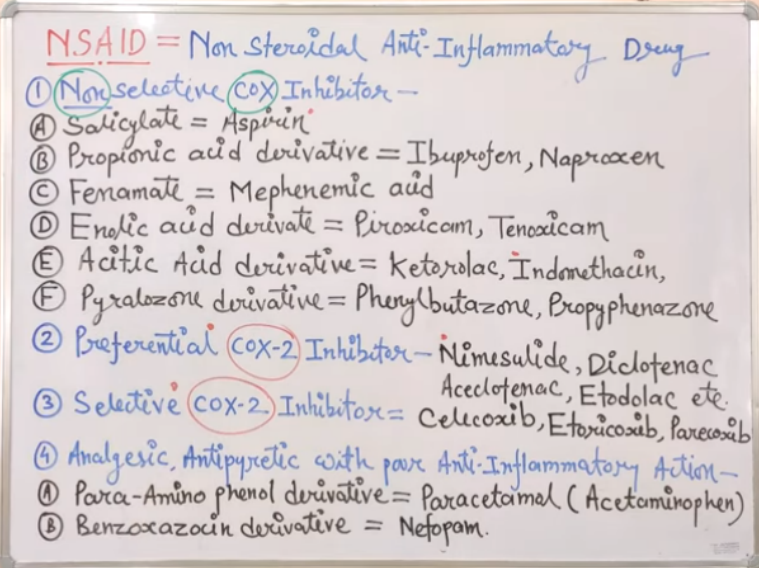 NSAID = Non Steroidal Anti-Inflammatory Drug
① Non selective COX Inhibitor -
Ⓐ Salicylate = Aspirin
Ⓑ Propionic acid derivative = Ibuprofen, Naproxen
Ⓒ Fenamate = Mephenemic acid
Ⓓ Enolic acid derivate = Piroxicam, Tenoxicam
Ⓔ Acitic Acid derivative = Ketorolac, Indomethacin,
Ⓕ Pyralozone derivative = Phenylbutazone, Propyphenazone
② Preferential COX-2 Inhibitor - Nimesulide, Diclofenac
Aceclofenac, Etodolac etc.
③ Selective COX-2 Inhibitor = Celecoxib, Etoricoxib, Parecoxib
④ Analgesic, Antipyretic with poor Anti-Inflammatory Action -
Ⓐ Para-Amino phenol derivative = Paracetamal (Acetaminophen)
Ⓑ Benzoxazocin derivative = Nefopam.